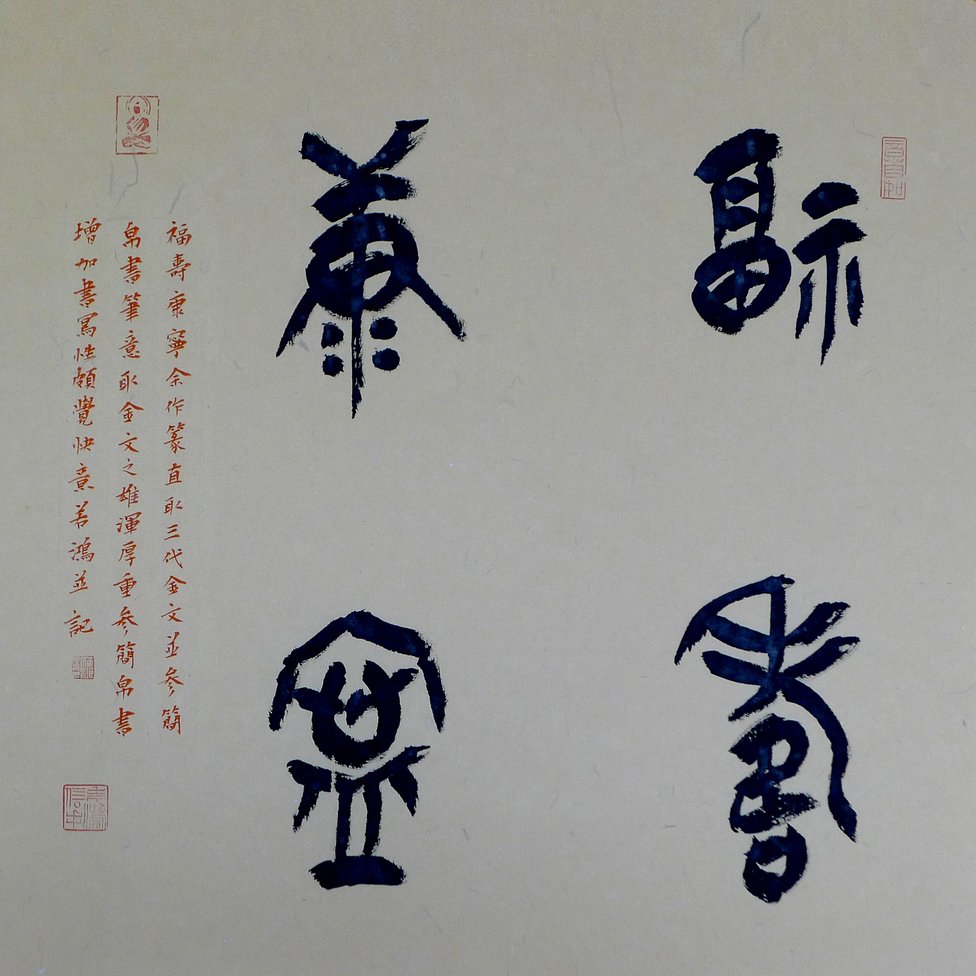 福壽
康寧
福壽康寧余作篆直取三代金文並參簡
帛書筆意取金文之雄渾厚重參簡帛書
增加書寫性頗覺快意善鴻並記